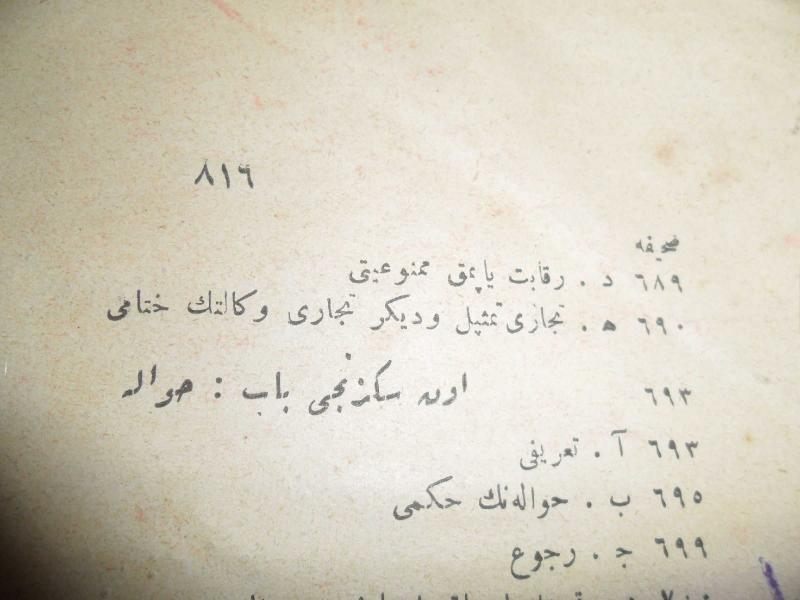 ٨١٦
صحيفه
٦٨٩ د . رقابت ياپمق ممنوعيتى
٦٩٠ ه . تجارى تمثيل وديكر تجارى وكالتك ختامى
٦٩٣ اون سكزنجى باب : حواله
٦٩٣ آ . تعريفى
٦٩٥ ب . حواله‌نك حكمى
٦٩٩ ج . رجوع